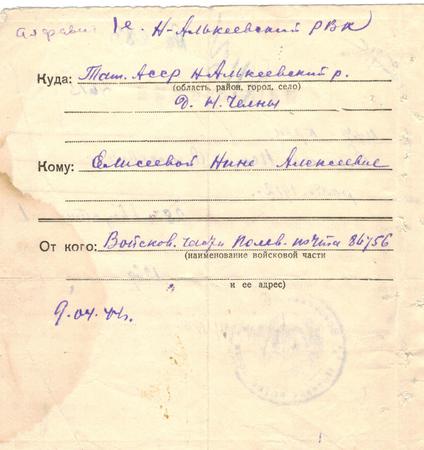 алфавит 1е. Н-Алькеевский РВК
Куда: Тат. АССР Н Алькеевский р.
(область, район, город, село)
д. Н. Челны
Кому: Елисеевой Нине Алексеевне
От кого: Войсков. части Полев. почта 86756
(наименование войсковой части
и ее адрес)
9.04.44г.